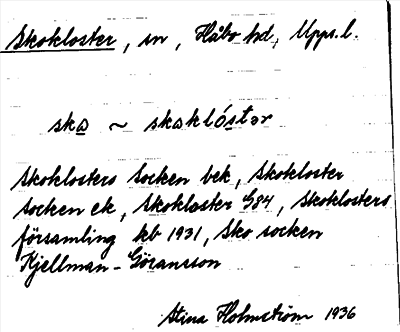 Skokloster, sn, Håbo hd, Upps.l.
sko ~ skoklóstər
Skoklosters Socken bek, Skokloster
socken ek, Skokloster G84, Skoklosters
församling kb 1931, Sko socken
Kjellman-Göransson
Stina Holmström 1936